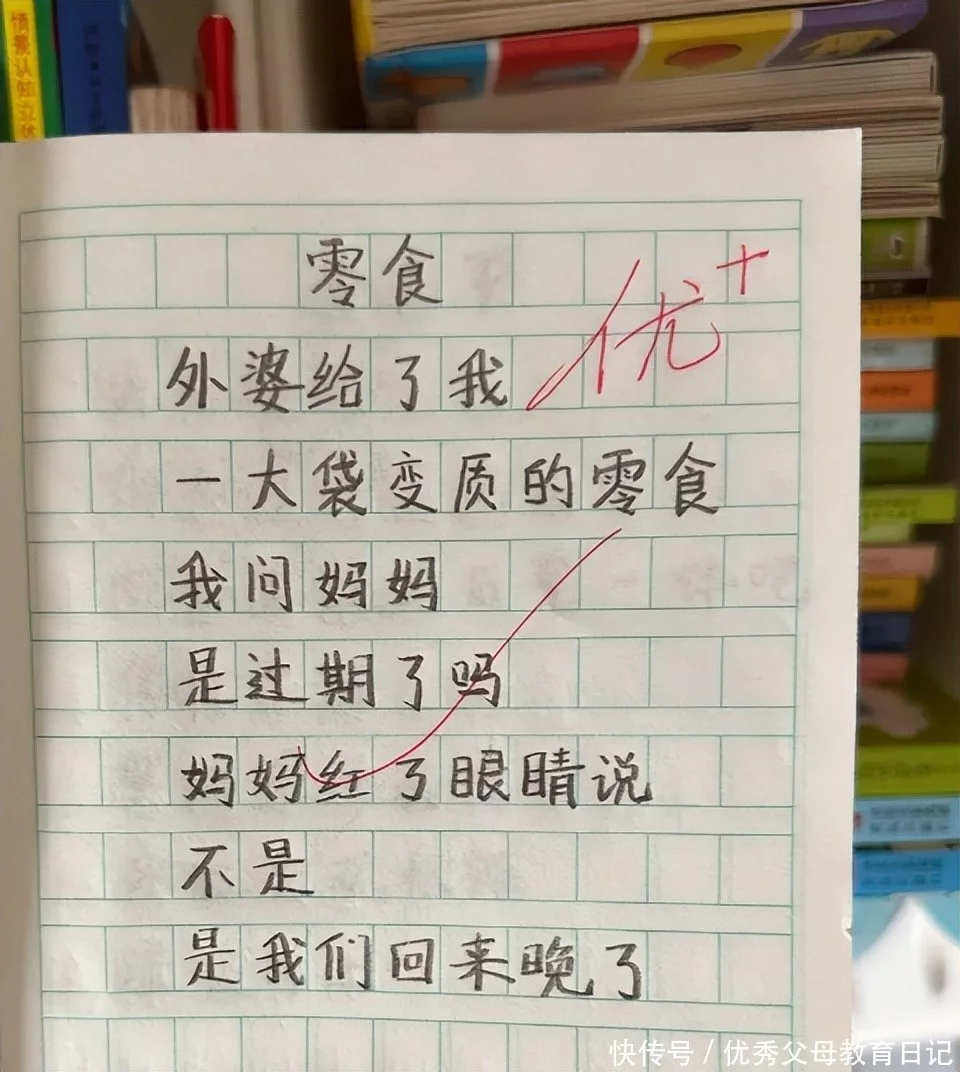 情景认知立体
零食
优+
外婆给了我
一大袋变质的零食
我问妈妈
是过期了吗
妈妈红了眼睛说
不是
是我们回来晚了
快传号/优秀父母教育日记